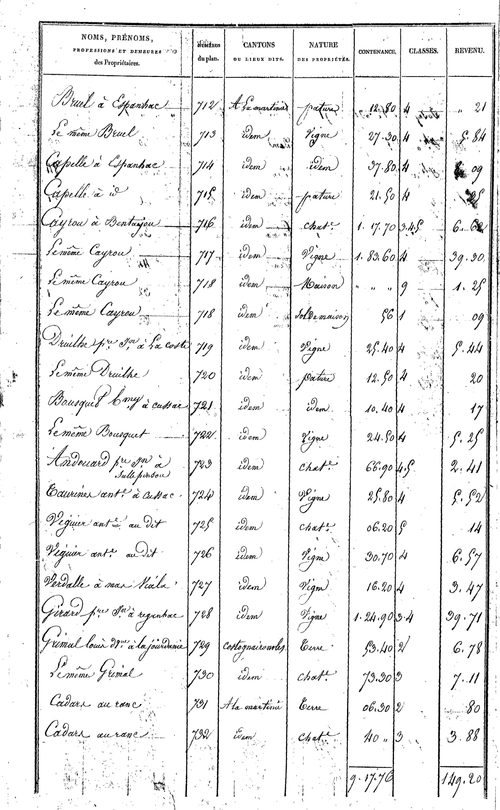 NOMS, PRÉNOMS, PROFESSIONS ET DEMEURES des Propriétaires. du plan. CANTONS OU LIEUX DITS. NATURE DES PROPRIÉTÉS. CONTENANCE. CLASSES. REVENU.
Bruel à Espanhac 712 A La martinie pature " 12.80 4 " 21
Le même Bruel 713 idem Vigne 27.30 4 5.84
Capelle à Espanhac 714 idem idem 37.80 4 09
Capelle à id 715 idem pature 21.50 4 25
Cayrou à Bentajou 716 idem chat.e 1.17.70 3.4.5 6.62
Le même Cayrou 717 idem Vigne 1.83.60 4 39.30
Le même Cayrou 718 idem Maison " " " 9 1.25
Le même Cayrou 718 idem Sol de maison 56 1 09
Druilhe p.re J.n à La coste 719 idem Vigne 25.40 4 5.44
Le même Druilhe 720 idem pature 12.50 4 20
Bousquet à cussac 721 idem idem 10.40 4 17
Le même Bousquet 722 idem Vigne 24.50 4 5.25
Andouard p.re J.n à 723 idem chat.e 66.90 4.5 2.41
Taurines ant.e à Cussac 724 idem Vigne 25.80 4 5.52
Viguier ant.e au dit 725 idem chat.e 06.20 5 14
Viguier ant.e au dit 726 idem Vigne 30.70 4 6.57
Verdalle à mas Viala 727 idem Vigne 16.20 4 3.47
Girard p.re J.n à regenbac 728 idem Vigne 1.24.90 3.4 39.71
Grimal louis à la jourdanie 729 Terre 53.40 2 6.78
Le même Grimal 730 idem chat.e 73.30 3 7.11
Cadars au ranc 731 A la martinie Terre 06.30 2 80
Cadars au ranc 732 Idem chat.e 40 " 3 3.88
9.17.76 149.20